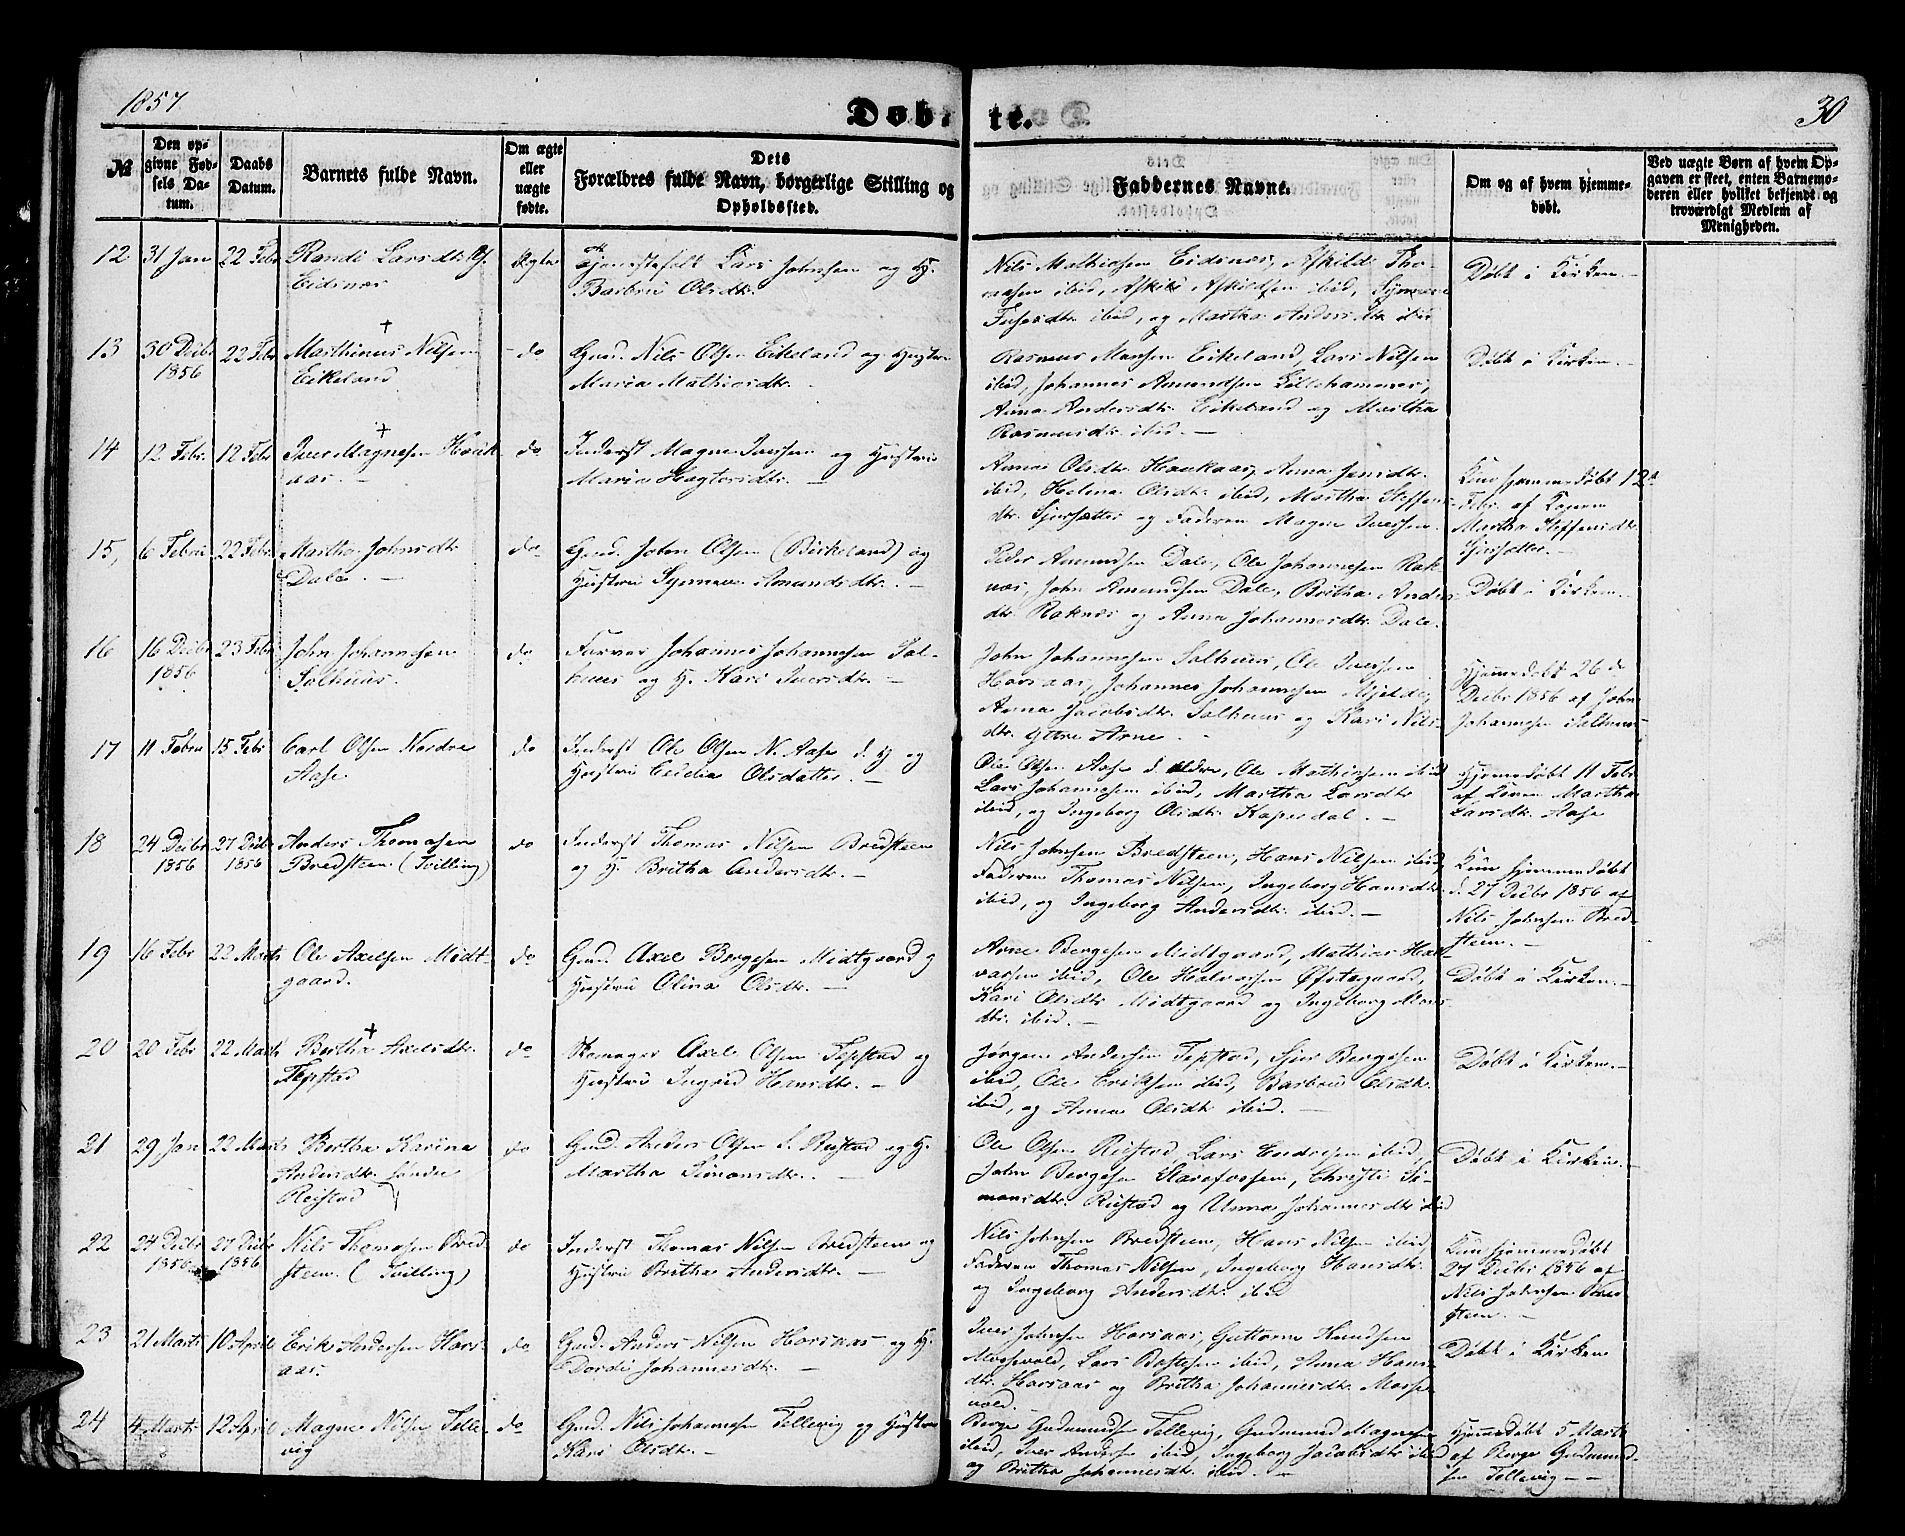 1857.
Døbte.
30
№
Den opgivne Fødsels Datum.
Daabs Datum.
Barnets fulde Navn.
Om ægte eller uægte fødte.
Dets Forældres fulde Navn, borgerlige Stilling og Opholdssted.
Faddernes Navne.
Om og af hvem hjemmedøbt.
Ved uægte Børn af hvem Opgaven er skeet, enten Barnemoderen eller hvilket bekjendt og troværdigt Medlem af Menigheden.
12 31 Jan 22 Febr Randi Larsdtr
Eidsnæs
Ægte
Lars Johnsen og H.
Barbru Olsdtr.
Nils Mathiesen Eidsnæs, Askild Tho-
masen ibid, Askild Askildsen ibid, Synneve
ibid, og Martha Andersdtr ibid
Døbt i Kirken.
13 30 Decbr 1856 22 Febr Marthinus Nilsen
Eikeland
do
Gmd. Nils Olsen Eikeland og Hustru
Maria Mathiasdtr.
Rasmus Monsen Eikeland, Lars Nilsen
ibid, Johannes Amundsen Lillehammer,
Anna Andersdtr. Eikeland og Martha
Rasmusdtr. ibid.
Døbt i Kirken.
14 12 Febr. 12 Febr Iver Magnesen Hauk-
aas.
do
Inderst Magne Iversen og Hustru
Maria
Olsdtr. Haukaas, Anna
ibid, Helena Olsdtr. ibid, Martha Steffens-
dtr. Sjursætter og Faderen Magne Iversen.
Kun hjemmedøbt 12te
Febr. af Konen
Martha Steffensdtr.
Sjursætter.
15, 6 Februar 22 Febr Martha Johnsdtr
Dale.
do
Gmd. John Olsen (Birkeland) og
Hustru Synneve Amundsdtr.
Peder Amundsen Dale, Ole Johannesen Rak-
næs, John Amundsen Dale, Britha Anders-
dtr. Raknæs og Anna Johannesdtr. Dale.
Døbt i Kirken.
16 16 Decbr 1856 23 Febr John Johannesen
Salhuus.
do
Farver Johannes Johannesen Sal-
huus og H. Kari Iversdtr.
John Johannesen Salhuus, Ole Iversen
Horsaas, Johannes Johannesen Mjelde,
Anna Jacobsdtr. Salhuus og Kari Nils-
dtr. Yttre Arne.
Hjemmedøbt 26 d
Decbr 1856 af John
Johannesen Salhuus
17 11 Febru 15 Febr Carl Olsen Nordre
Aase
do
Inderst Ole Olsen N. Aase d. y og
Hustru Cecilia Olsdatter.
Ole Olsen Aase d. ældre, Ole Mathiesen ibid
Lars Johannesen ibid, Martha Larsdtr
ibid, og Ingeborg Olsdtr.
Hjemmedøbt 11 Febr.
af Konen Martha
Larsdtr. Aase
18 24 Decbr 1856 27 Decbr 1856 Anders Thomasen
Bredsteen (Tvilling)
do
Inderst Thomas Nilsen Bredsteen
og H. Britha Andersdtr.
Nils Johnsen Bredsteen, Hans Nilsen ibid,
Faderen Thomas Nilsen, Ingeborg Hansdtr.
ibid, og Ingeborg Andersdtr. ibid.
Kun hjemmedøbt
d. 27 Decbr 1856 af
Nils Johnsen Bred-
steen.
19 16 Febr 22 Marts Ole Axelsen Midt-
gaard.
do
Gmd. Axel Børgesen Midtgaard og
Hustru Olina Olsdtr.
Arne Børgesen Midtgaard, Mathias Hal-
varsen ibid, Ole Halvorsen Øfstegaard,
Kari Olsdtr Midtgaard og Ingeborg Mons-
dtr. ibid.
Døbt i Kirken.
20 20 Febr 22 Marts Bertha Axelsdtr.
do
Skomager Axel Olsen og
Hustru Ingrid Hansdtr.
Jørgen Andersen Sjur Børgesen
ibid, Ole Eriksen ibid, Barbru Olsdtr.
ibid, og Anna Olsdtr ibid.
Døbt i Kirken.
21 29 Jan 22 Marts Bertha Karina
Andersdtr. Søndre
Reistad
do
Gmd. Anders Olsen S. Reistad og H.
Martha Simonsdtr.
Ole Olsen Reistad, Lars Endresen ibid,
John Børgesen Christi Si-
monsdtr. Reistad og Anna Johannesdtr ibid
Døbt i Kirken.
22 24 Decbr 1856 27 Decbr 1856 Nils Thomasen Bred-
steen. (Tvilling)
do
Inderst Thomas Nilsen Bredsteen og
Hustru Britha Andersdtr.
Nils Johnsen Bredsteen, Hans Nilsen ibid,
Faderen Thomas Nilsen, Ingeborg Hansdtr.
og Ingeborg Andersdtr. ibid
Kun hjemmedøbt
27 Decbr 1856 af
Nils Johnsen Bred-
steen.
23 21 Marts 10 April Erik Andersen Hors-
aas.
do
Gmd. Anders Nilsen Horsaas og H.
Dordi Johannesdtr.
Iver Johnsen Horsaas, Guttorm Knudsen
Mossevold, Lars ibid, Anna Hans-
dtr. Horsaas og Britha Johannesdtr. Mosse-
vold.
Døbt i Kirken
24 4 Marts 12 April Magne Nilsen Telle-
vig
do
Gmd. Nils Johannesen Tellevig og Hustru
Kari Olsdtr.
Børge Gudmundsen Tellevig, Gudmund Magnesen
ibid, Iver Andersen ibid, Ingeborg Jacobsdtr ibid
og Britha Johannesdtr. ibid.
Hjemmedøbt 5 Marts
af Børge Gudmund-
sen Tellevig